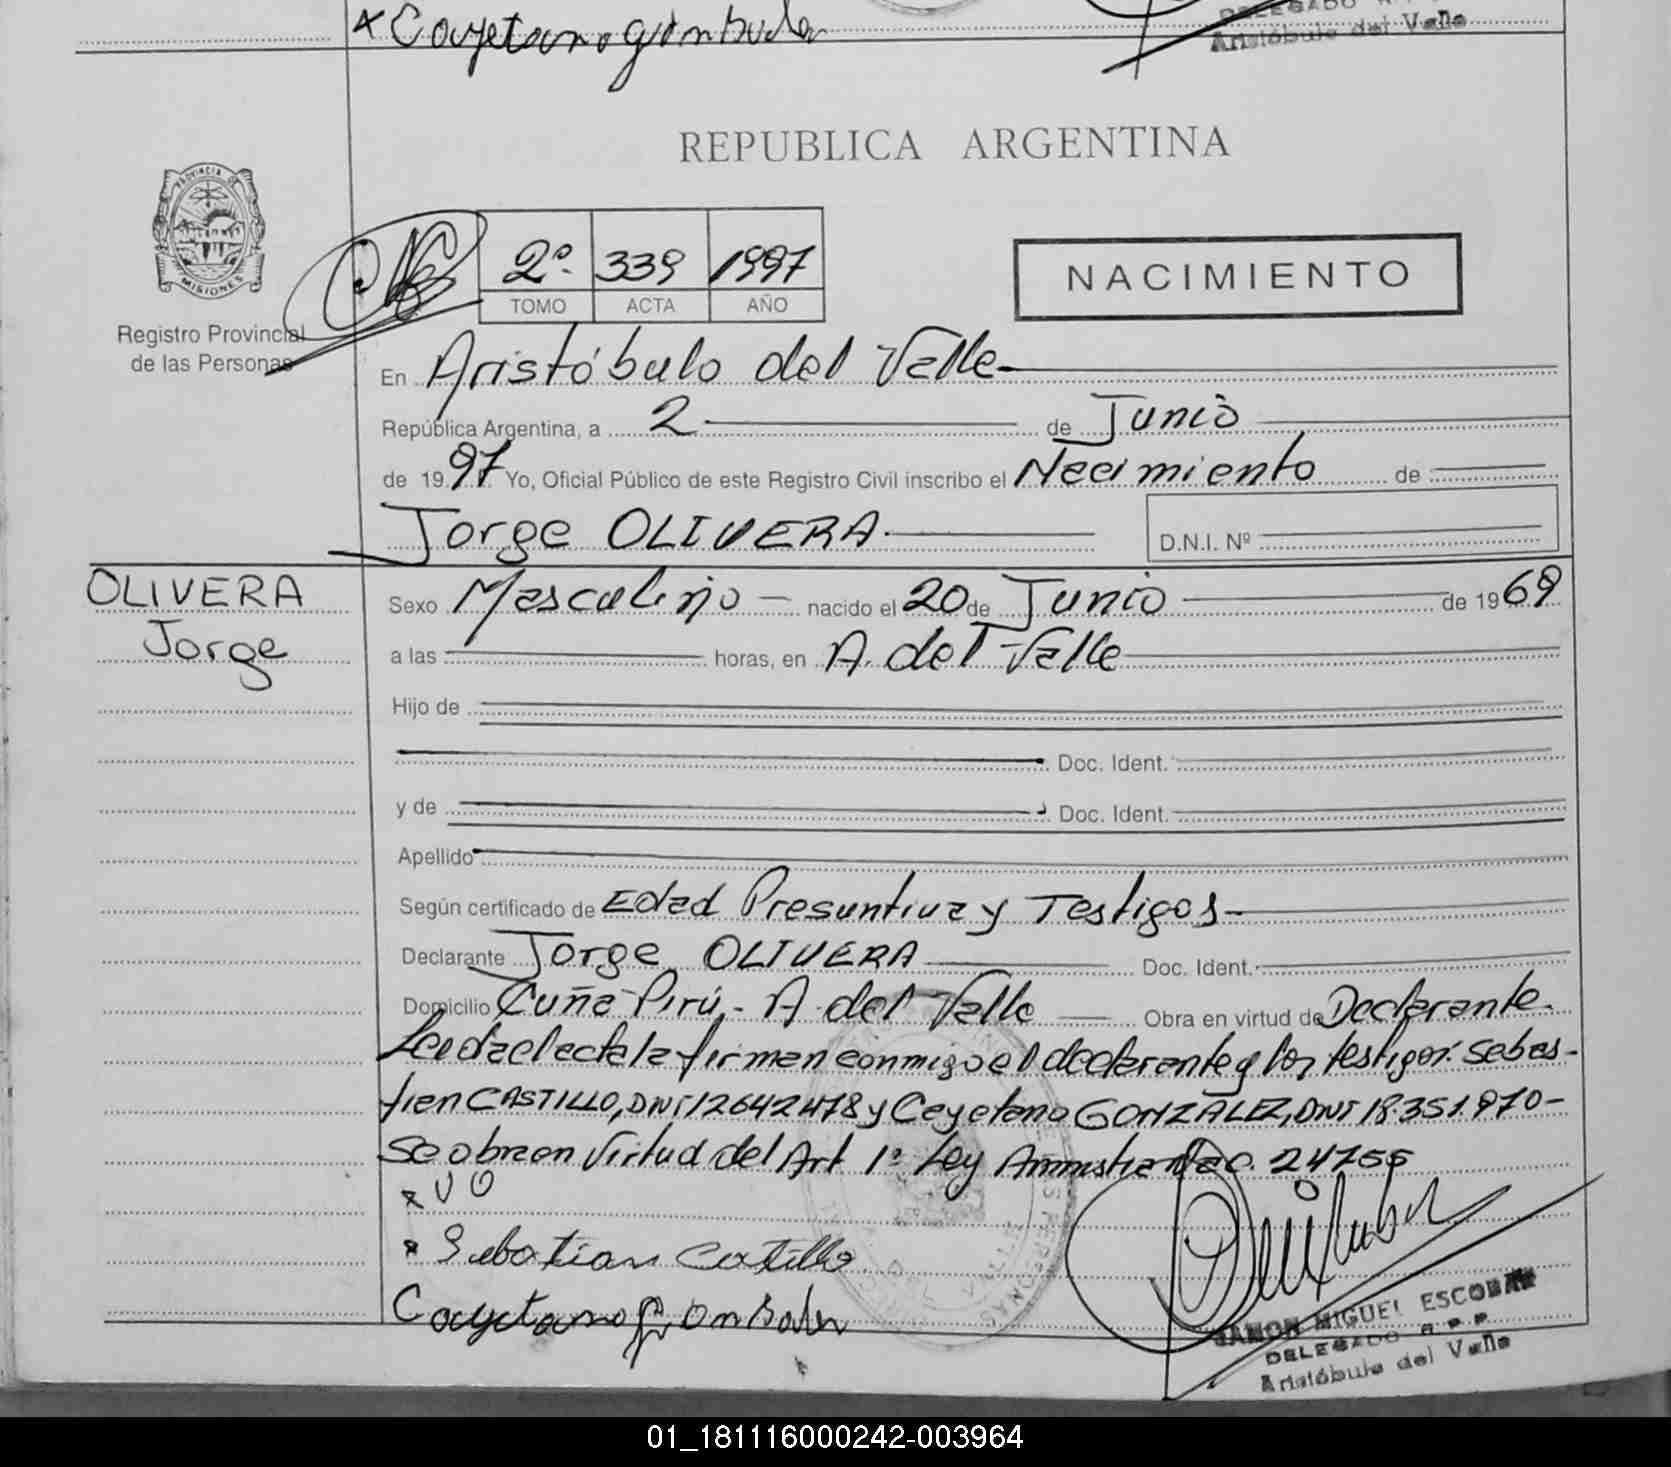 x Cayetano Gonsales
DELEGADO
Aristóbulo del Valle
REPUBLICA ARGENTINA
PROVINCIA DE
MISIONES
Registro Provincial
de las Personas
2º 339 1997
TOMO ACTA AÑO
NACIMIENTO
En Aristóbulo del Valle
República Argentina, a 2 de Junio
de 1997 Yo, Oficial Público de este Registro Civil inscribo el Nacimiento de
Jorge OLIVERA
D.N.I. Nº
OLIVERA
Jorge
Sexo Masculino nacido el 20 de Junio de 1969
a las horas, en A. del Valle
Hijo de
Doc. Ident.
y de Doc. Ident.
Apellido
Según certificado de Edad Presuntiva y Testigos
Declarante Jorge OLIVERA Doc. Ident.
Domicilio Cuña Pirú - A. del Valle Obra en virtud de Declarante.
Leida el acta la firman conmigo el declarante y los testigos: Sebas-
tian CASTILLO, DNI 12642478 y Cayetano GONZÁLEZ, DNI 18.351.970-
Se obra en virtud del Art 1º Ley Amnistia Nac. 24755
x U O
x Sebatian Catillo
Cayetano Gonsales
RAMON MIGUEL ESCOBAR
DELEGADO R.P.P
Aristóbulo del Valle
01_181116000242-003964